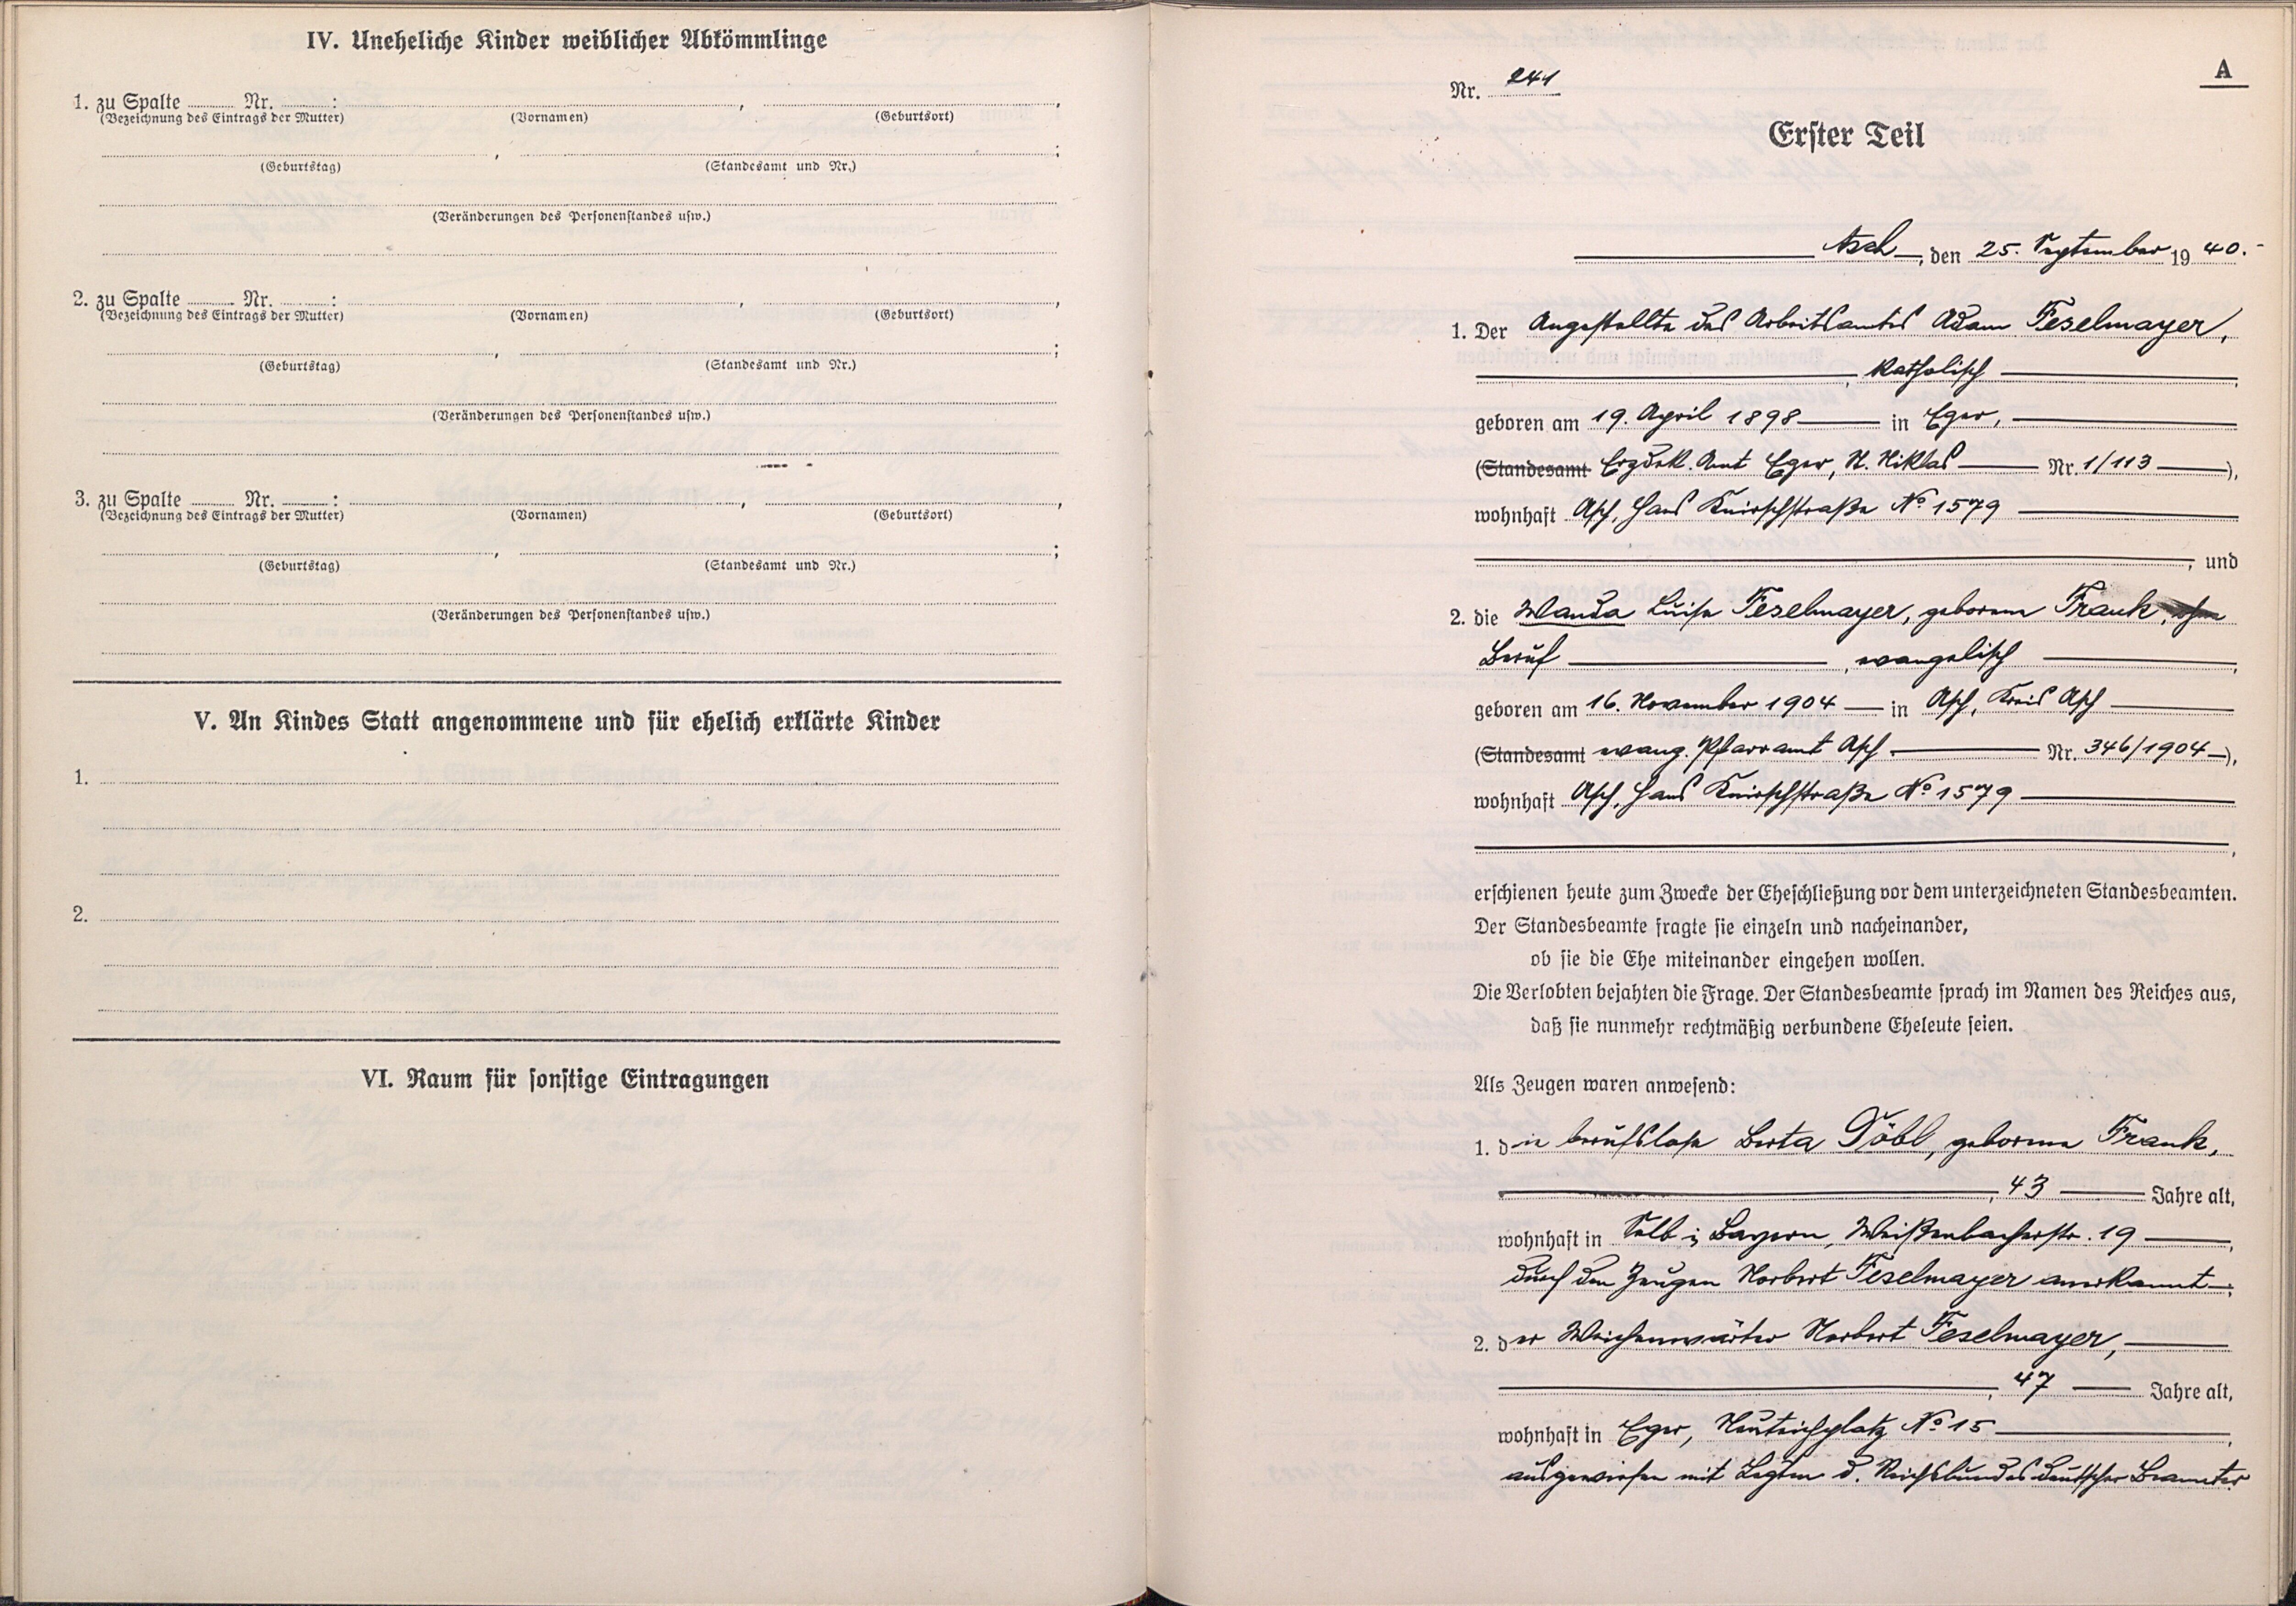 IV. Uneheliche Kinder weiblicher Abkömmlinge
1. zu Spalte ........ Nr. ........ :
(Bezeichnung des Eintrags der Mutter) (Vornamen) (Geburtsort)
(Geburtstag) (Standesamt und Nr.)
(Veränderungen des Personenstandes usw.)
2. zu Spalte ........ Nr. ........ :
(Bezeichnung des Eintrags der Mutter) (Vornamen) (Geburtsort)
(Geburtstag) (Standesamt und Nr.)
(Veränderungen des Personenstandes usw.)
3. zu Spalte ........ Nr. ........ :
(Bezeichnung des Eintrags der Mutter) (Vornamen) (Geburtsort)
(Geburtstag) (Standesamt und Nr.)
(Veränderungen des Personenstandes usw.)
V. An Kindes Statt angenommene und für ehelich erklärte Kinder
1.
2.
VI. Raum für sonstige Eintragungen
A
Nr. 241
Erster Teil
Asch, den 25. September 1940.
1. Der Angestellte des Arbeitsamtes Adam Feselmayer,
, katholisch
geboren am 19. April 1898 in Eger,
(Standesamt Erzdek. Amt Eger, St. Niklas Nr. 1/113),
wohnhaft Asch, Hans Knirschstraße No 1579
, und
2. die Wanda Luise Feselmayer, geborene Frank, ohne
Beruf, evangelisch
geboren am 16. November 1904 in Asch, Kreis Asch
(Standesamt evang. Pfarramt Asch Nr. 346/1904),
wohnhaft Asch, Hans Knirschstraße No 1579
erschienen heute zum Zwecke der Eheschließung vor dem unterzeichneten Standesbeamten.
Der Standesbeamte fragte sie einzeln und nacheinander,
ob sie die Ehe miteinander eingehen wollen.
Die Verlobten bejahten die Frage. Der Standesbeamte sprach im Namen des Reiches aus,
daß sie nunmehr rechtmäßig verbundene Eheleute seien.
Als Zeugen waren anwesend:
1. die berufslose Berta Döbl, geborene Frank,
, 43 Jahre alt,
wohnhaft in Selb i. Bayern, Weißenbacherstr. 19,
durch den Zeugen Norbert Feselmayer anerkannt;
2. der Weichenwärter Norbert Feselmayer,
, 47 Jahre alt,
wohnhaft in Eger, No 15,
ausgewiesen mit d. Reichsbundes deutscher Beamter